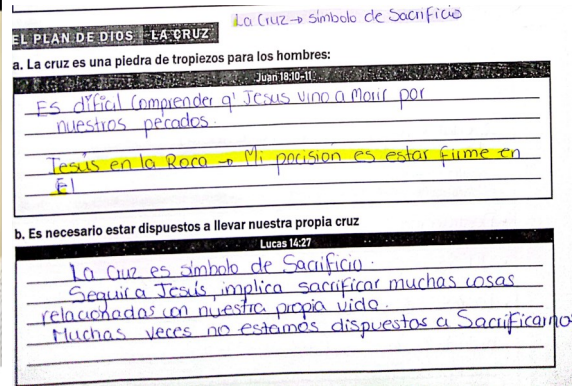 La Cruz → símbolo de Sacrificio
EL PLAN DE DIOS LA CRUZ
a. La cruz es una piedra de tropiezos para los hombres:
Juan 18:10-11
Es difícil Comprender q' Jesus vino a Morir por
nuestros pecados.
Jesús en la Roca → Mi pocision es estar firme en
El
b. Es necesario estar dispuestos a llevar nuestra propia cruz
Lucas 14:27
La Cruz es simbolo de Sacrificio.
Seguir a Jesús, implica sacrificar muchas cosas
relacionadas con nuestra propia vida.
Muchas veces no estamos dispuestos a Sacrificarno